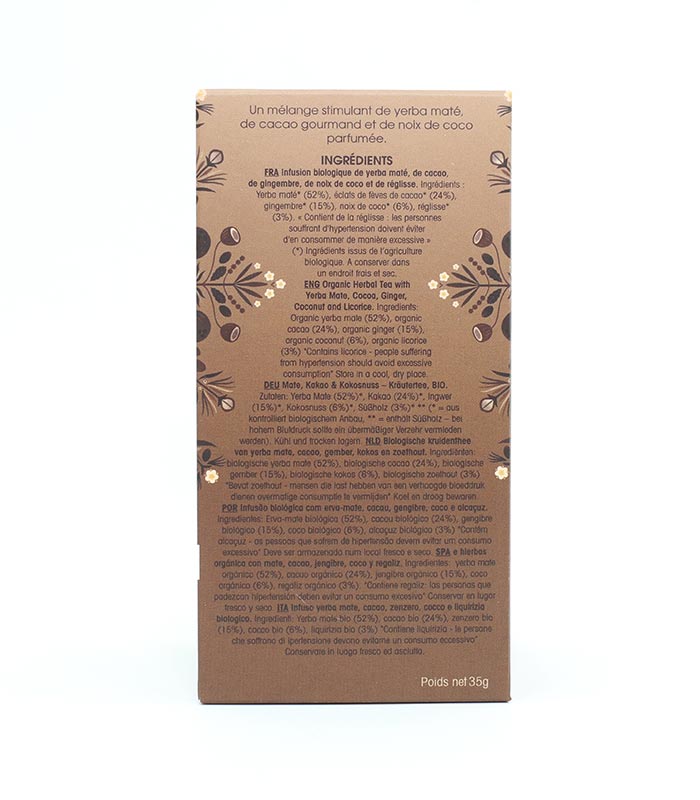 Un mélange stimulant de yerba maté,
de cacao gourmand et de noix de coco
parfumée.
INGRÉDIENTS
FRA Infusion biologique de yerba maté, de cacao,
de gingembre, de noix de coco et de réglisse. Ingrédients :
Yerba maté* (52%), éclats de fèves de cacao* (24%),
gingembre* (15%), noix de coco* (6%), réglisse*
(3%). « Contient de la réglisse : les personnes
souffrant d'hypertension doivent éviter
d'en consommer de manière excessive »
(*) Ingrédients issus de l'agriculture
biologique. A conserver dans
un endroit frais et sec.
ENG Organic Herbal Tea with
Yerba Mate, Cocoa, Ginger,
Coconut and Licorice. Ingredients:
Organic yerba mate (52%), organic
cacao (24%), organic ginger (15%),
organic coconut (6%), organic licorice
(3%) "Contains licorice - people suffering
from hypertension should avoid excessive
consumption" Store in a cool, dry place.
DEU Mate, Kakao & Kokosnuss – Kräutertee, BIO.
Zutaten: Yerba Mate (52%)*, Kakao (24%)*, Ingwer
(15%)*, Kokosnuss (6%)*, Süßholz (3%)* ** (* = aus
kontrolliert biologischem Anbau, ** = enthält Süßholz – bei
hohem Blutdruck sollte ein übermäßiger Verzehr vermieden
werden). Kühl und trocken lagern. NLD Biologische kruidenthee
van yerba mate, cacao, gember, kokos en zoethout. Ingrediënten:
biologische yerba mate (52%), biologische cacao (24%), biologische
gember (15%), biologische kokos (6%), biologische zoethout (3%)
"Bevat zoethout - mensen die last hebben van een verhoogde bloeddruk
dienen overmatige consumptie te vermijden" Koel en droog bewaren.
POR Infusão biológica com erva-mate, cacau, gengibre, coco e alcaçuz.
Ingredientes: Erva-mate biológica (52%), cacau biológico (24%), gengibre
biológico (15%), coco biológico (6%), alcaçuz biológico (3%) "Contém
alcaçuz - as pessoas que sofrem de hipertensão devem evitar um consumo
excessivo" Deve ser armazenado num local fresco e seco. SPA e hierbas
orgánica con mate, cacao, jengibre, coco y regaliz. Ingredientes: yerba mate
orgánico (52%), cacao orgánico (24%), jengibre orgánico (15%), coco
orgánica (6%), regaliz orgánica (3%). "Contiene regaliz: las personas que
padezcan hipertensión deben evitar un consumo excesivo" Conservar en lugar
fresco y seco. ITA Infuso yerba mate, cacao, zenzero, cocco e liquirizia
biologico. Ingredienti: Yerba mate bio (52%), cacao bio (24%), zenzero bio
(15%), cacao bio (6%), liquirizia bio (3%) "Contiene liquirizia - le persone
che soffrono di ipertensione devono evitarne un consumo eccessivo"
Conservare in luogo fresco ed asciutto.
Poids net 35g